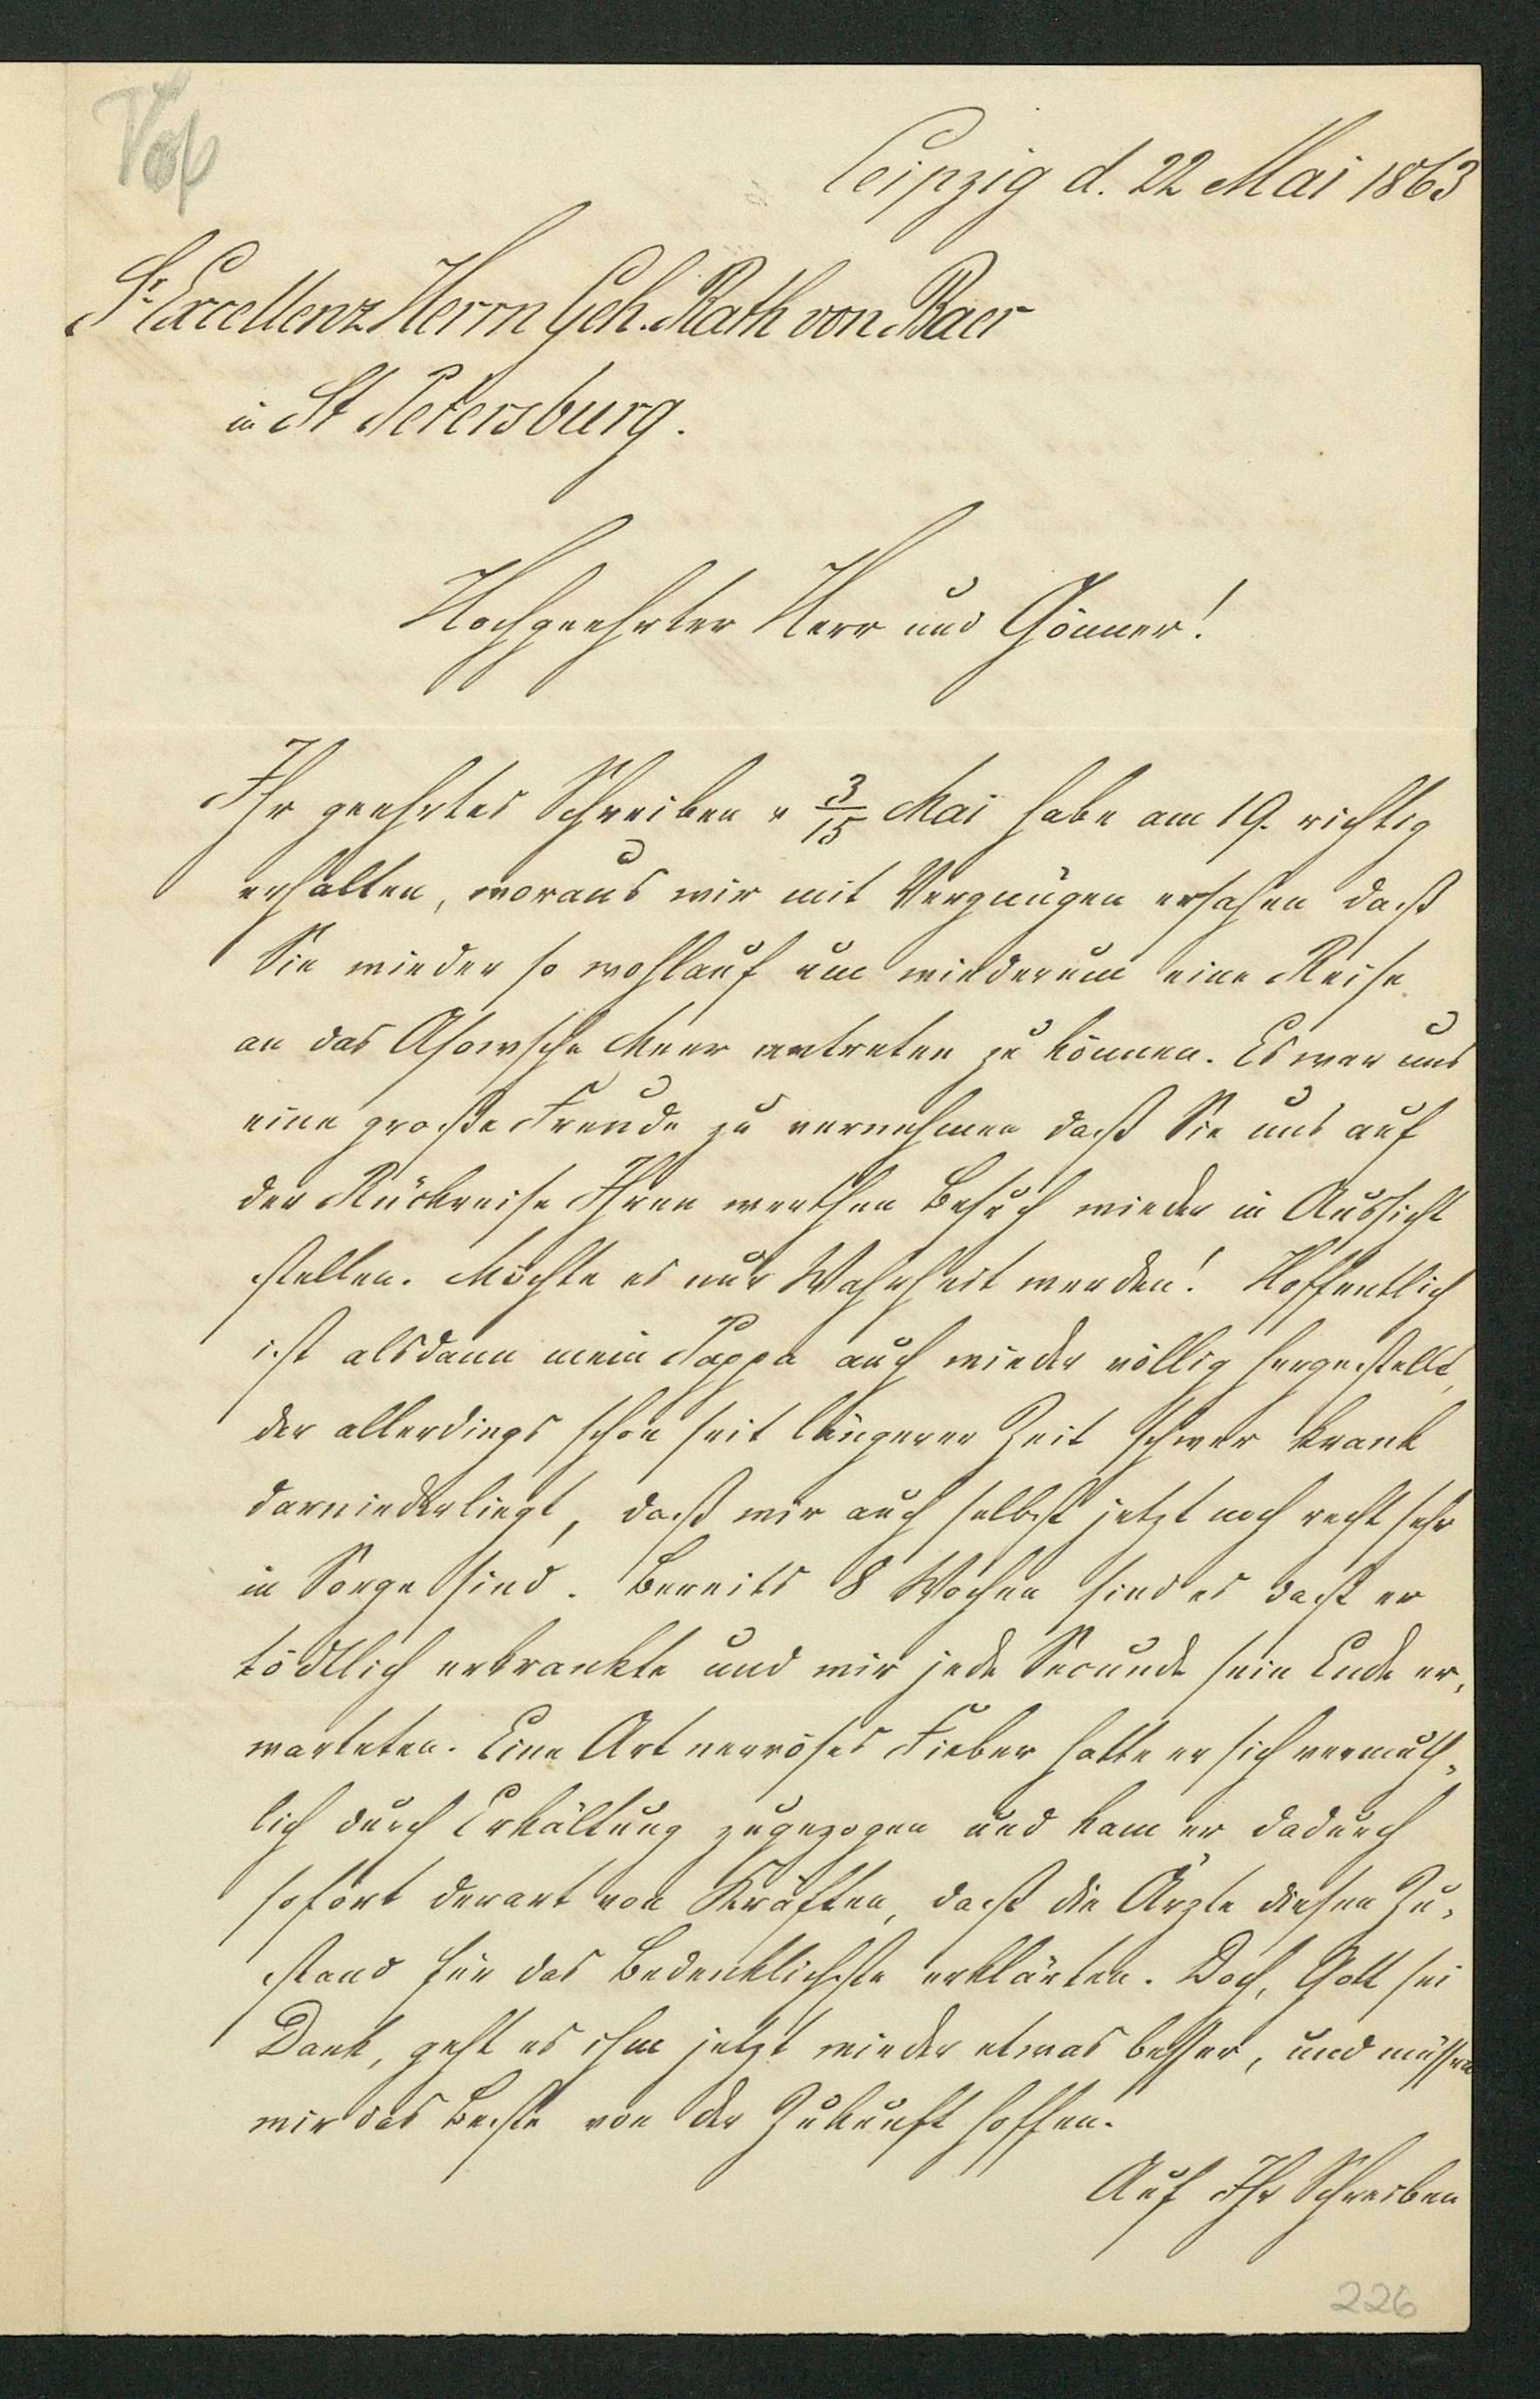 Voß
Leipzig d. 22 Mai 1863
Sr Excellenz Herrn Geh. Rath von Baer
in St Petersburg.
Hochgeehrter Herr und Gönner!
Ihr geehrtes Schreiben v 3/15 Mai habe am 19. richtig
erhalten, woraus wir mit Vergnügen ersahen daß
Sie wieder so wohlauf um wiederum eine Reise
an das Asowsche Meer antreten zu können. Es war uns
eine große Freude zu vernehmen daß Sie uns auf
der Rückreise Ihren werthen Besuch wieder in Aussicht
stellen. Möchte es nur Wahrheit werden! Hoffentlich
ist alsdann mein Pappa auch wieder völlig hergestellt,
der allerdings schon seit längerer Zeit schwer krank
darniederliegt, daß wir auch selbst jetzt noch recht sehr
in Sorge sind. Bereits 8 Wochen sind es daß er
tödtlich erkrankte und wir jede Secunde sein Ende er-
warteten. Eine Art nervöses Fieber hatte er sich vermuth-
lich durch Erkältung zugezogen und kam er dadurch
sofort derart von Kräften, daß die Ärzte diesen Zu-
stand für das Bedenklichste erklärten. Doch, Gott sei
Dank, geht es ihm jetzt wieder etwas besser, und müssen
wir das Beste von der Zukunft hoffen.
Auf Ihr Schreiben
226